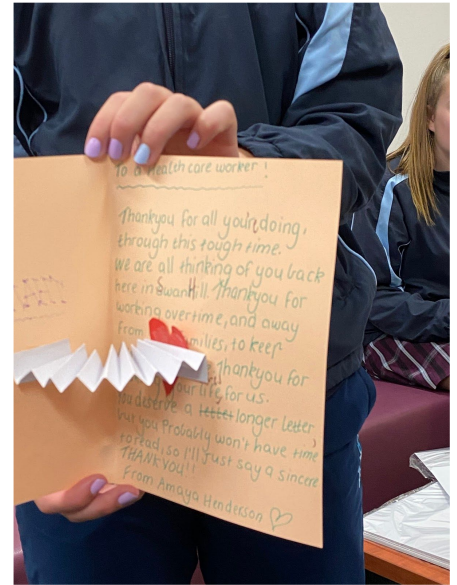 To a Health care worker!
Thankyou for all you'r doing,
through this tough time.
we are all thinking of you back
here in Swan Hill. Thankyou for
working overtime, and away
from milies, to keep
Thankyou for
your life, for us.
You deserve a letter longer letter
but you Probably won't have time
to read, so I'll Just say a sincere
THANKYOU!!
From Amaya Henderson